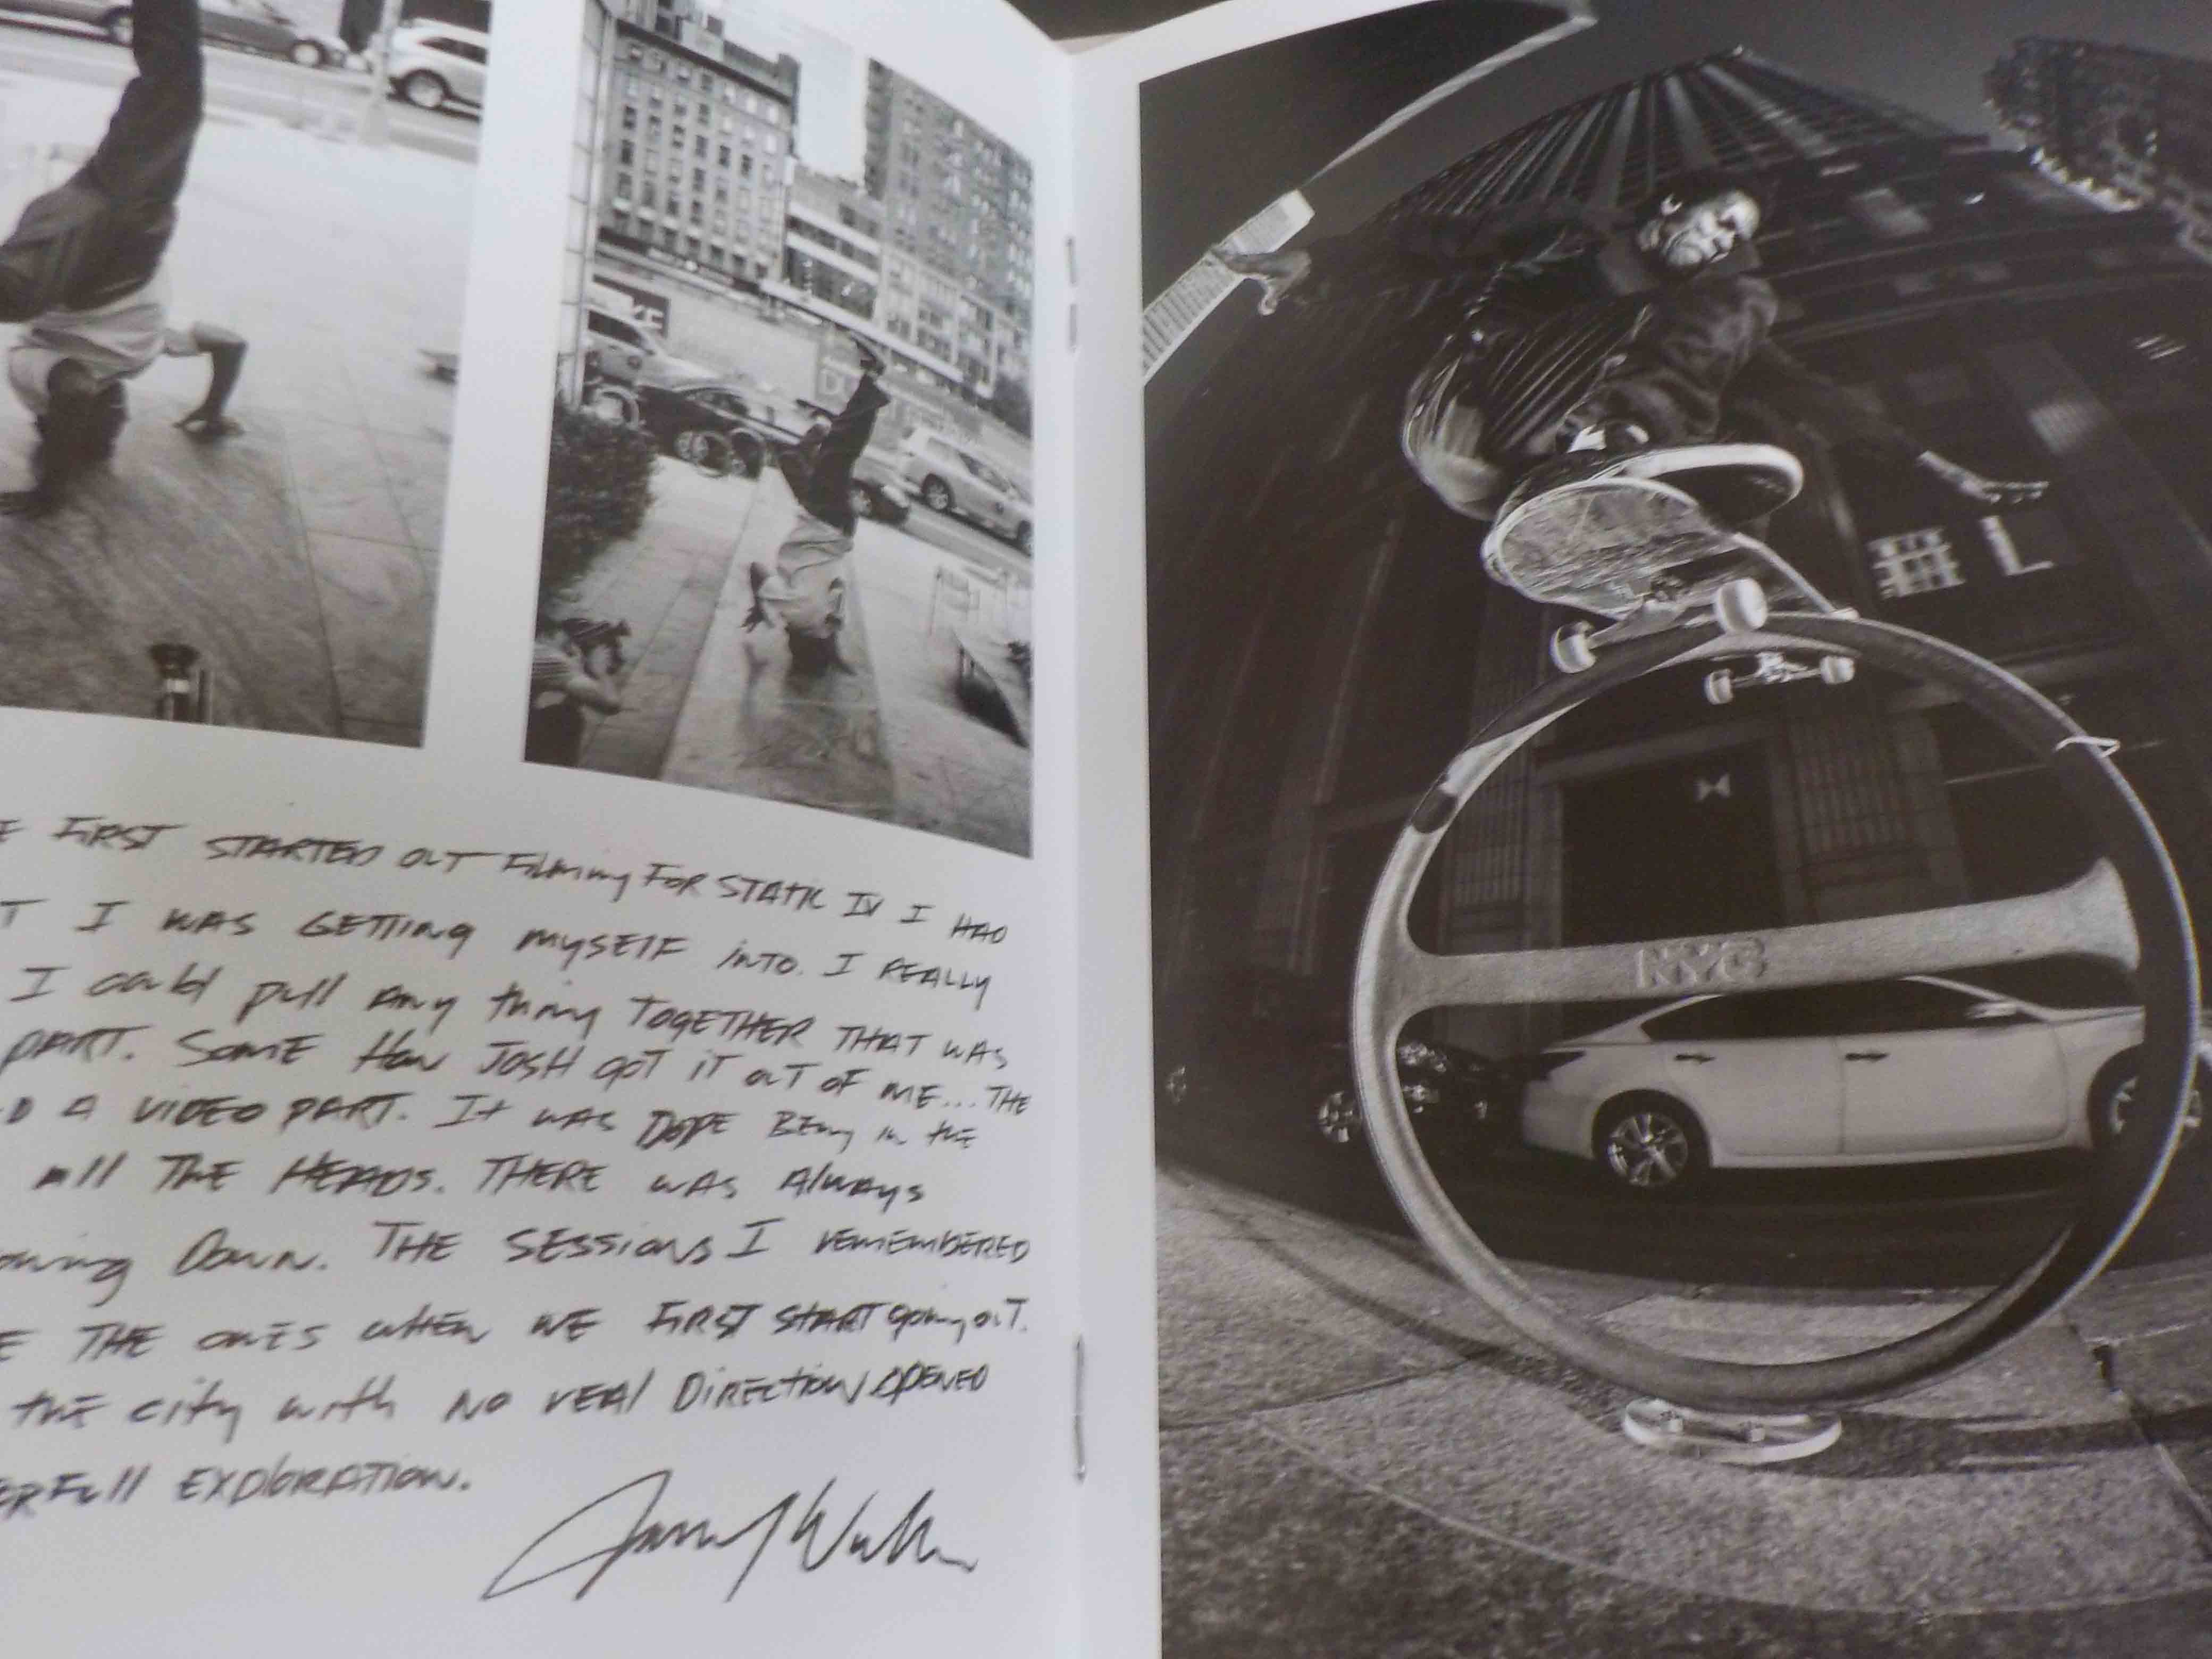 E FIRST STARTED OUT Filming FOR STATIC IV I HAD
T I WAS GETTING MYSELF INTO. I REALLY
I could pull Any thing TOGETHER THAT WAS
PART. SOME HOW JOSH GOT IT OUT OF ME... THE
D A VIDEO PART. It WAS DOPE BEing in the
All THE HEADS. THERE WAS Always
Down. THE SESSIONS I REMEMBERED
E THE ONES WHEN WE FIRST START going OUT.
the city with NO REAl DIRECTION OPENED
ERFUll EXPlORATION.
NYC